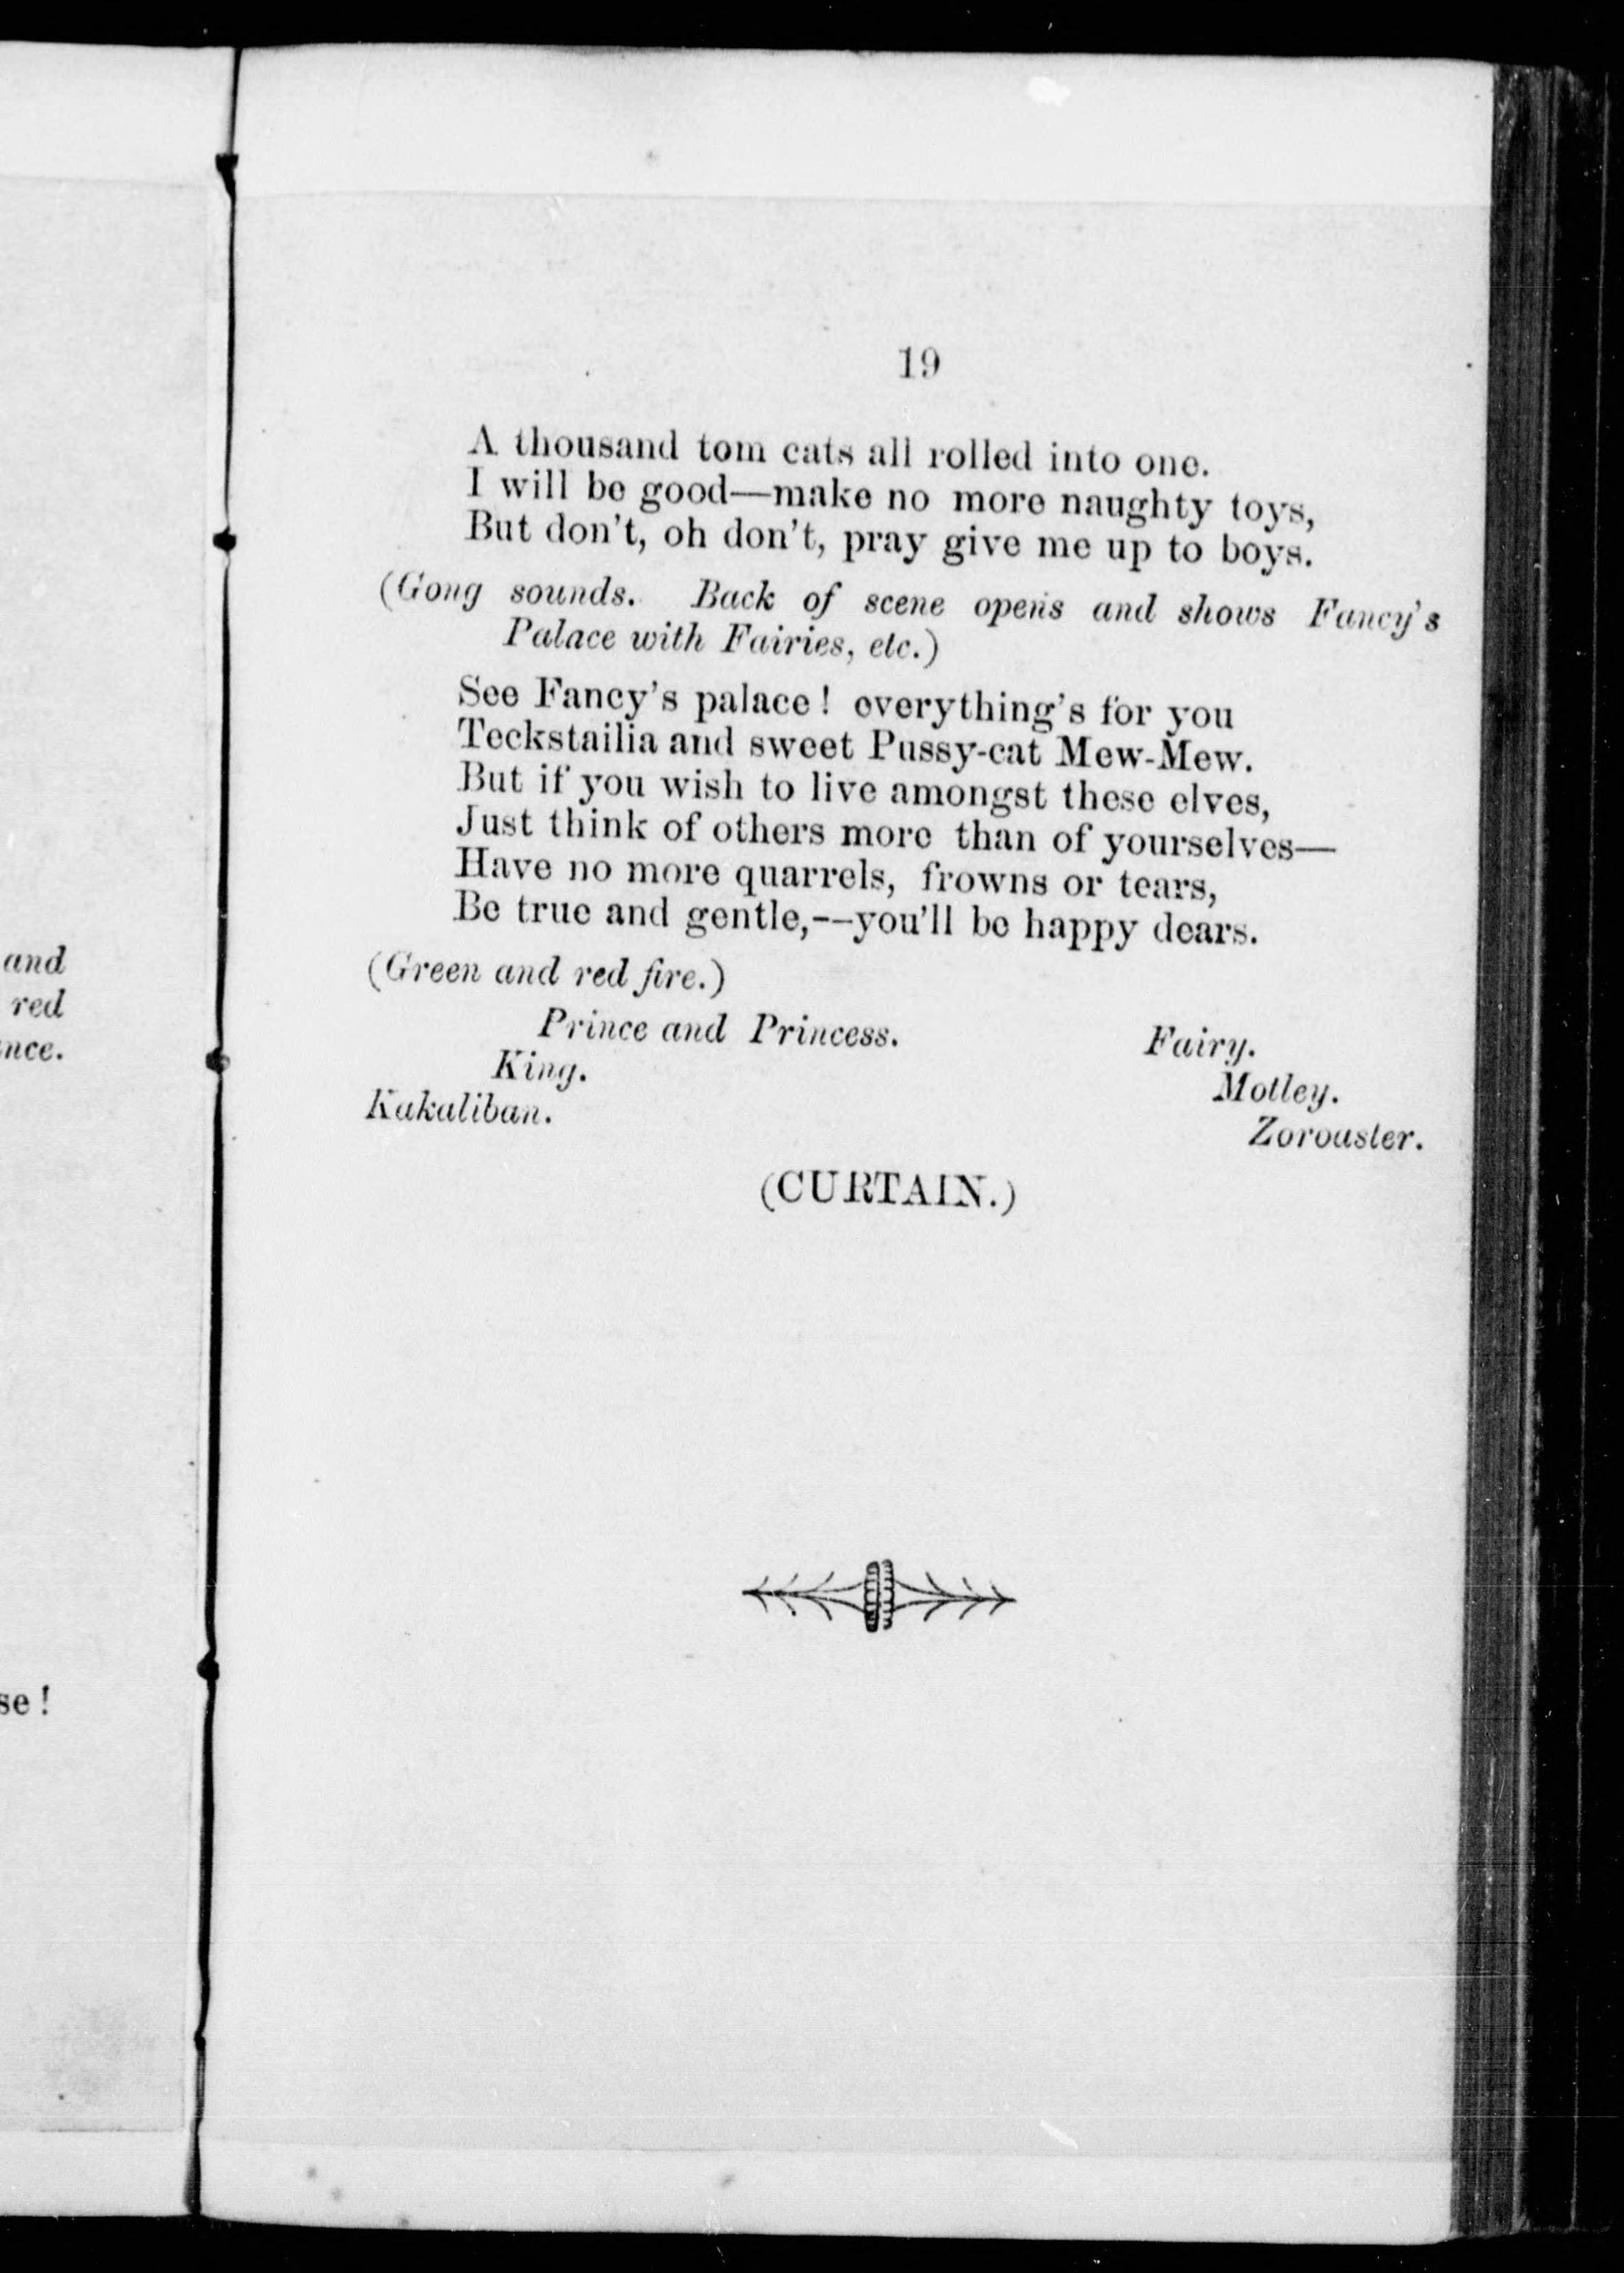 19
A thousand tom cats all rolled into one.
I will be good—make no more naughty toys,
But don't, oh don't, pray give me up to boys.
(Gong sounds. Back of scene opens and shows Fancy's
Palace with Fairies, etc.)
See Fancy's palace! everything's for you
Teckstailia and sweet Pussy-cat Mew-Mew.
But if you wish to live amongst these elves,
Just think of others more than of yourselves—
Have no more quarrels, frowns or tears,
Be true and gentle,--you'll be happy dears.
(Green and red fire.)
Prince and Princess. Fairy.
King. Motley.
Kakaliban. Zoroaster.
(CURTAIN.)
and
red
nce.
se!